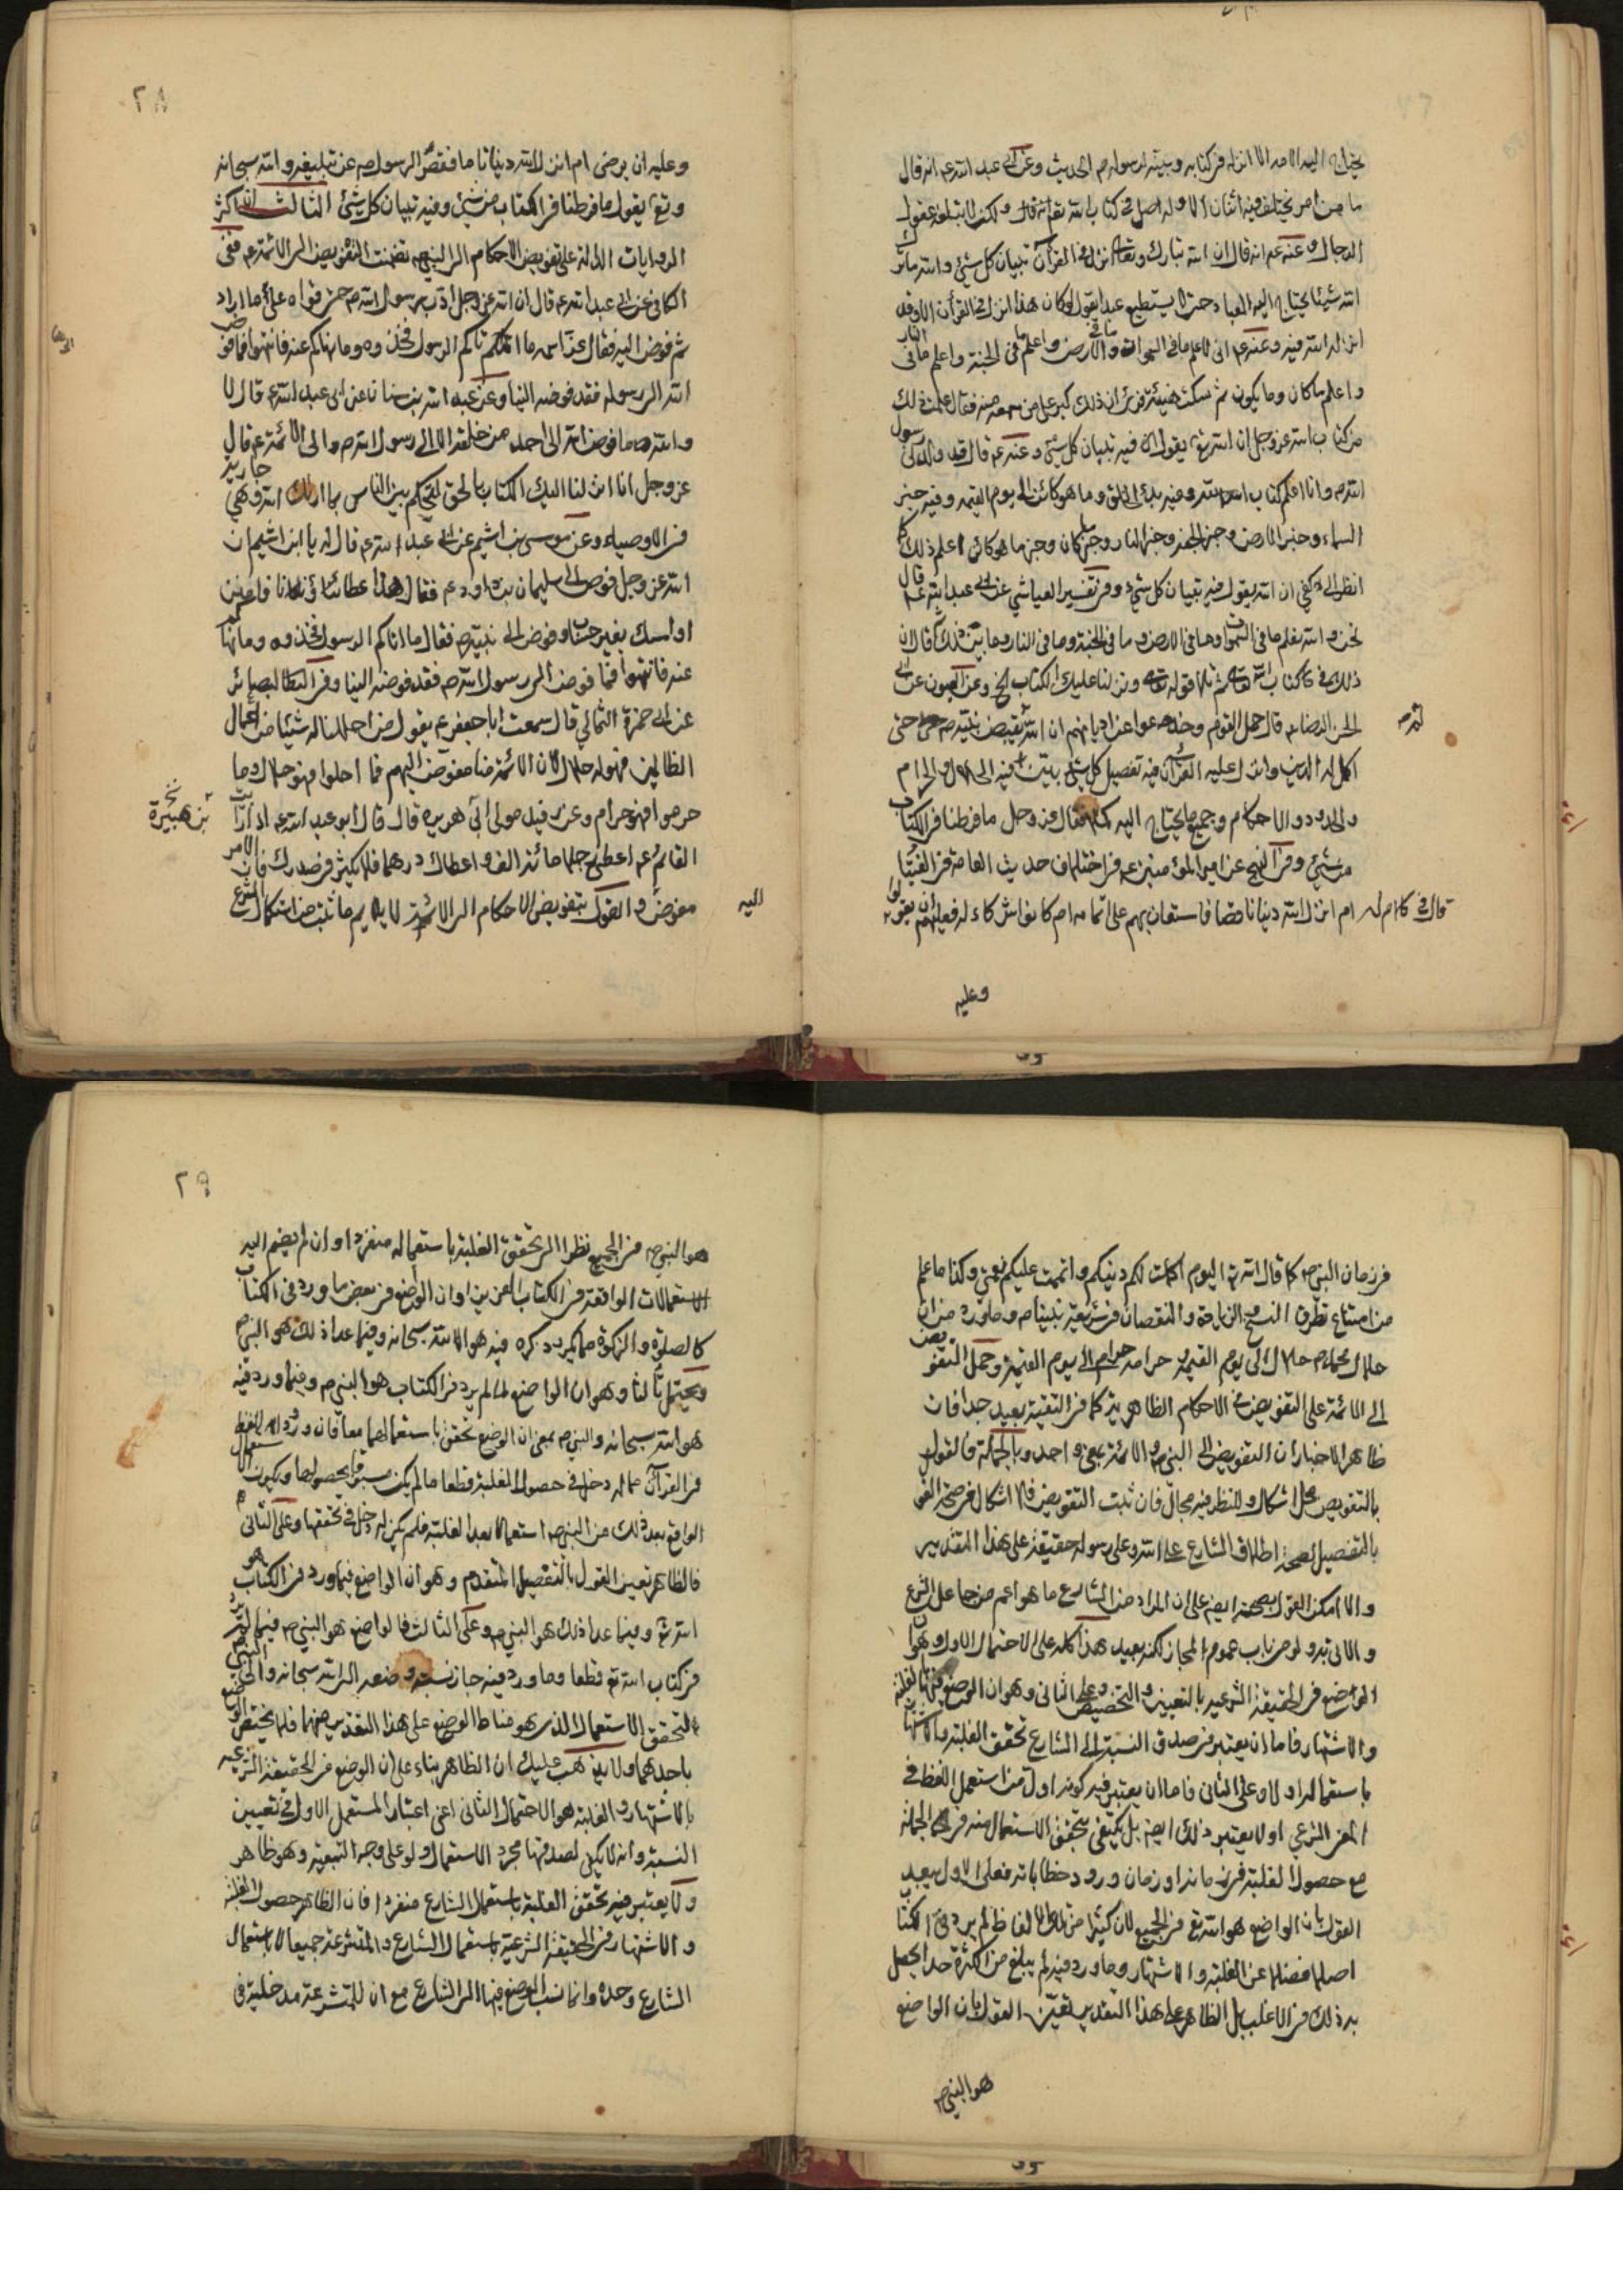 يحتاج اليه الامة الا انزله في كتابه وبينه لرسوله ص الحديث وعن ابي عبد الله ع انه قال
ما من امر يختلف فيه اثنان الا وله اصل في كتاب الله تعالى قال ولكن لا تبلغه عقول
الرجال وعنه ع انه قال ان الله تبارك وتعالى انزل في القرآن تبيان كل شئ والله ما ترك
الله شيئا يحتاج اليه العباد حتى لا يستطيع عبد يقول لو كان هذا انزل في القرآن الا وقد
انزله الله فيه وعنه ع اني لاعلم ما في السموات وما في الارض واعلم ما في الجنة واعلم ما في النار
واعلم ما كان وما يكون ثم سكت هنيئة فرأى ان ذلك كبر على من سمعه منه فقال علمت ذلك
من كتاب الله عز وجل ان الله تع يقول فيه تبيان كل شئ وعنه ع قال قد ولدني رسول
الله ص وانا اعلم كتاب الله وفيه بدئ الخلق وما هو كائن الى يوم القيمة وفيه خبر
السماء وخبر الارض وخبر الجنة وخبر النار وخبر ما كان وخبر ما هو كائن اعلم ذلك كما
انظر الى كفي ان الله يقول فيه تبيان كل شئ وفي تفسير العياشي عن ابي عبد الله ع قال
نحن والله نعلم ما في السموات وما في الارض وما في الجنة وما في النار وما بين ذلك ثم قال ان
ذلك في كتاب الله تعالى ثم تلا قوله تعالى ونزلنا عليك الكتاب الخ وعن العيون عن ابي
الحسن الرضا ع قال جهل القوم وخدعوا عن اديانهم ان الله لم يقبض نبيه ص حتى
اكمل له الدين وانزل عليه القرآن فيه تفصيل كل شئ بين فيه الحلال والحرام
والحدود والاحكام وجميع ما يحتاج اليه كملا فقال عز وجل ما فرطنا في الكتاب
من شئ وفي النهج عن امير المؤمنين ع في اختلاف حديث العامة في الفتيا
قال في كلام له ام انزل الله دينا ناقصا فاستعان بهم على اتمامه ام كانوا شركاء له فعليهم ان يقولوا
وعليه
٢٨
وعليه ان يرضى ام انزل الله دينا تاما فقصر الرسول ص عن تبليغه والله سبحانه
وتع يقول ما فرطنا في الكتاب من شئ وفيه تبيان كل شئ الثالث ان اكثر
الروايات الدالة على تفويض الاحكام الى النبي ص تضمنت التفويض الى الائمة ع ففي
الكافي عن ابي عبد الله ع قال ان الله عز وجل ادب رسول الله ص حتى قومه على ما اراد
ثم فوض اليه فقال عز اسمه ما اتيكم الرسول فخذوه وما نهاكم عنه فانتهوا فما فوض
الله الى رسوله فقد فوضه الينا وعن عبد الله بن سنان عن ابي عبد الله ع قال لا
والله ما فوض الله الى احد من خلقه الا الى رسول الله ص والى الائمة ع قال
عز وجل انا انزلنا اليك الكتاب بالحق لتحكم بين الناس بما اراك الله وهي جارية
في الاوصياء وعن موسى بن اشيم عن ابي عبد الله ع قال له يا ابن اشيم ان
الله عز وجل فوض الى سليمان بن داود ع فقال هذا عطاؤنا فامنن
او امسك بغير حساب وفوض الى نبيه ص فقال ما اتاكم الرسول فخذوه وما نهاكم
عنه فانتهوا فما فوض الى رسول الله ص فقد فوضه الينا وفي البصائر
عن ابي حمزة الثمالي قال سمعت ابا جعفر ع يقول من احللنا له شيئا من اعمال
الظالمين فهو له حلال لان الائمة منا مفوض اليهم فما احلوا فهو حلال وما
حرموا فهو حرام وعن رفيد مولى ابن هبيرة قال قال ابو عبد الله ع اذا رأيت
القائم ع اعطى رجلا مائة الف واعطاك درهما فلا يكبر في صدرك فان الامر
مفوض اليه والقول بتفويض الاحكام الى الائمة لا يلايم ما ثبت من استكمال الشرع
في زمان النبي ص كما قال الله تع اليوم اكملت لكم دينكم واتممت عليكم نعمتي وكذا ما علم
من امتناع تطرق النسخ والزيادة والنقصان في شريعة نبينا ص وما ورد من ان
حلال محمد ص حلال الى يوم القيمة وحرامه حرام الى يوم القيمة وحمل التفويض
الى الائمة على التفويض في الاحكام الظاهرية كما في التقية بعيد جدا فان
ظاهر الاخبار ان التفويض الى النبي ص والائمة بمعنى واحد وبالجملة فالقول
بالتفويض محل اشكال وللنظر فيه مجال فان ثبت التفويض فلا اشكال في صحة القول
بالتفصيل لصحة اطلاق الشارع على الله وعلى رسوله حقيقة على هذا التقدير
والا امكن القول بصحته ايضا على ان المراد من الشارع ما هو اعم من جاعل الشرع
والاتي به ولو من باب عموم المجاز لكنه بعيد هذا كله على الاحتمال الاول وهو ان
الواضع في الحقيقة الشرعية بالتعيين والتخصيص وعلى الثاني وهو ان الوضع فيها بالغلبة
والاشتهار فاما ان يعتبر في صدق النسبة الى الشارع تحقق الغلبة والاشتهار
باستعماله اولا وعلى الثاني فاما ان يعتبر فيه كونه اول من استعمل اللفظ في
المعنى الشرعي او لا يعتبر ذلك ايضا بل يكتفى بتحقق الاستعمال منه في الجملة
مع حصول الغلبة في زمانه او زمان ورود خطاباته فعلى الاول يبعد
القول بان الواضع هو الله تع في الجميع لان كثيرا من تلك الالفاظ لم يرد في الكتاب
اصلا فضلا عن الغلبة والاشتهار وما ورد فيه لم يبلغ من الكثرة حدا يحصل
به ذلك في الاغلب بل الظاهر على هذا التقدير تعين القول بان الواضع
هو النبي ص
٢٩
هو النبي ص في الجميع نظرا الى تحقق الغلبة باستعماله منفردا وان لم يضم اليه
الاستعمالات الواقعة في الكتاب العزيز او ان الواضع في بعض ما ورد في الكتاب
كالصلوة والزكوة مما يكرر ذكره فيه هو الله سبحانه وفيما عدا ذلك هو النبي ص
ويحتمل ثالثا وهو ان الواضع لما لم يرد في الكتاب هو النبي ص وفيما ورد فيه
هو الله سبحانه والنبي ص بمعنى ان الوضع تحقق باستعمالهما معا فان ورود اللفظ
في القرآن مما له دخل في حصول الغلبة قطعا ما لم يكن مسبوقا بحصولها ويكون الاستعمال
الواقع بعد ذلك من النبي ص استعمالا بعد الغلبة فلم يكن له دخل في تحققها وعلى الثاني
فالظاهر تعين القول بالتفصيل المتقدم وهو ان الواضع فيما ورد في الكتاب هو
الله تع وفيما عدا ذلك هو النبي ص وعلى الثالث فالواضع هو النبي ص فيما لم يرد
في كتاب الله تع قطعا وما ورد فيه جاز نسبة وضعه الى الله سبحانه والى النبي ص
لتحقق الاستعمال الذي هو مناط الوضع على هذا التقدير منهما فلا يختص الوضع
باحدهما ولا يذهب عليك ان الظاهر بناء على ان الوضع في الحقيقة الشرعية
بالاشتهار والغلبة هو الاحتمال الثاني اعني اعتبار المستعمل الاول في تعيين
النسبة وانه لا يكفي لصدقها مجرد الاستعمال ولو على وجه التبعية وهو ظاهر
ولا يعتبر فيه تحقق الغلبة باستعمال الشارع منفردا فان الظاهر حصول الغلبة
والاشتهار في الحقيقة الشرعية باستعمال الشارع والمتشرعة جميعا لا باستعمال
الشارع وحده وانما نسب الوضع فيها الى الشارع مع ان للمتشرعة مدخلية في